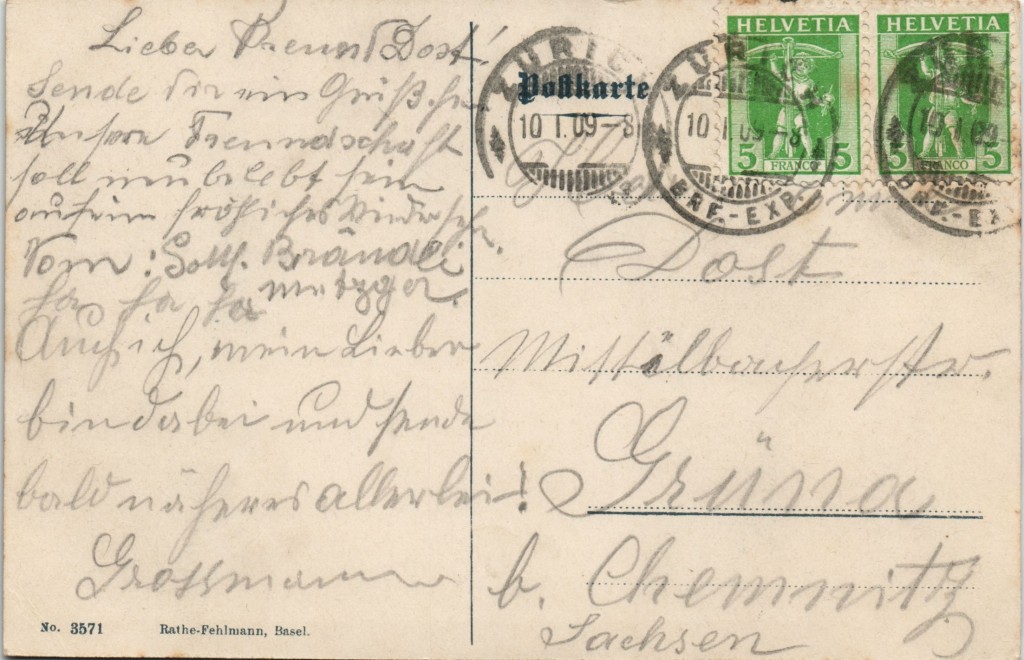 Lieber Freund Dost!
Sende Dir ein Grüßchen
Unsere Freundschaft
soll neu belebt sein
auf ein fröhliches Wiedersehn.
Vom: Gottl. Brändli
Metzger.
Ha Ha Ha
Auch ich, mein Lieber
bin dabei und sende
bald näheres allerlei!
Grossmann
No. 3571 Rathe-Fehlmann, Basel.
Postkarte
HELVETIA HELVETIA
5 FRANCO 5 5 FRANCO 5
ZÜRICH
10 I. 09 – 8
BRF.-EXP.
ZÜRICH
10 I. 09 – 8
BRF.-EXP.
10 I. 09
BRF.-EX
Dost
Mittelbacherstr.
Grüna
b. Chemnitz
Sachsen